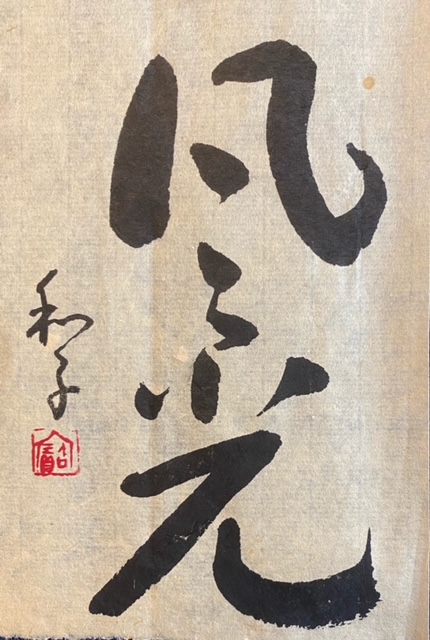 風光
和子